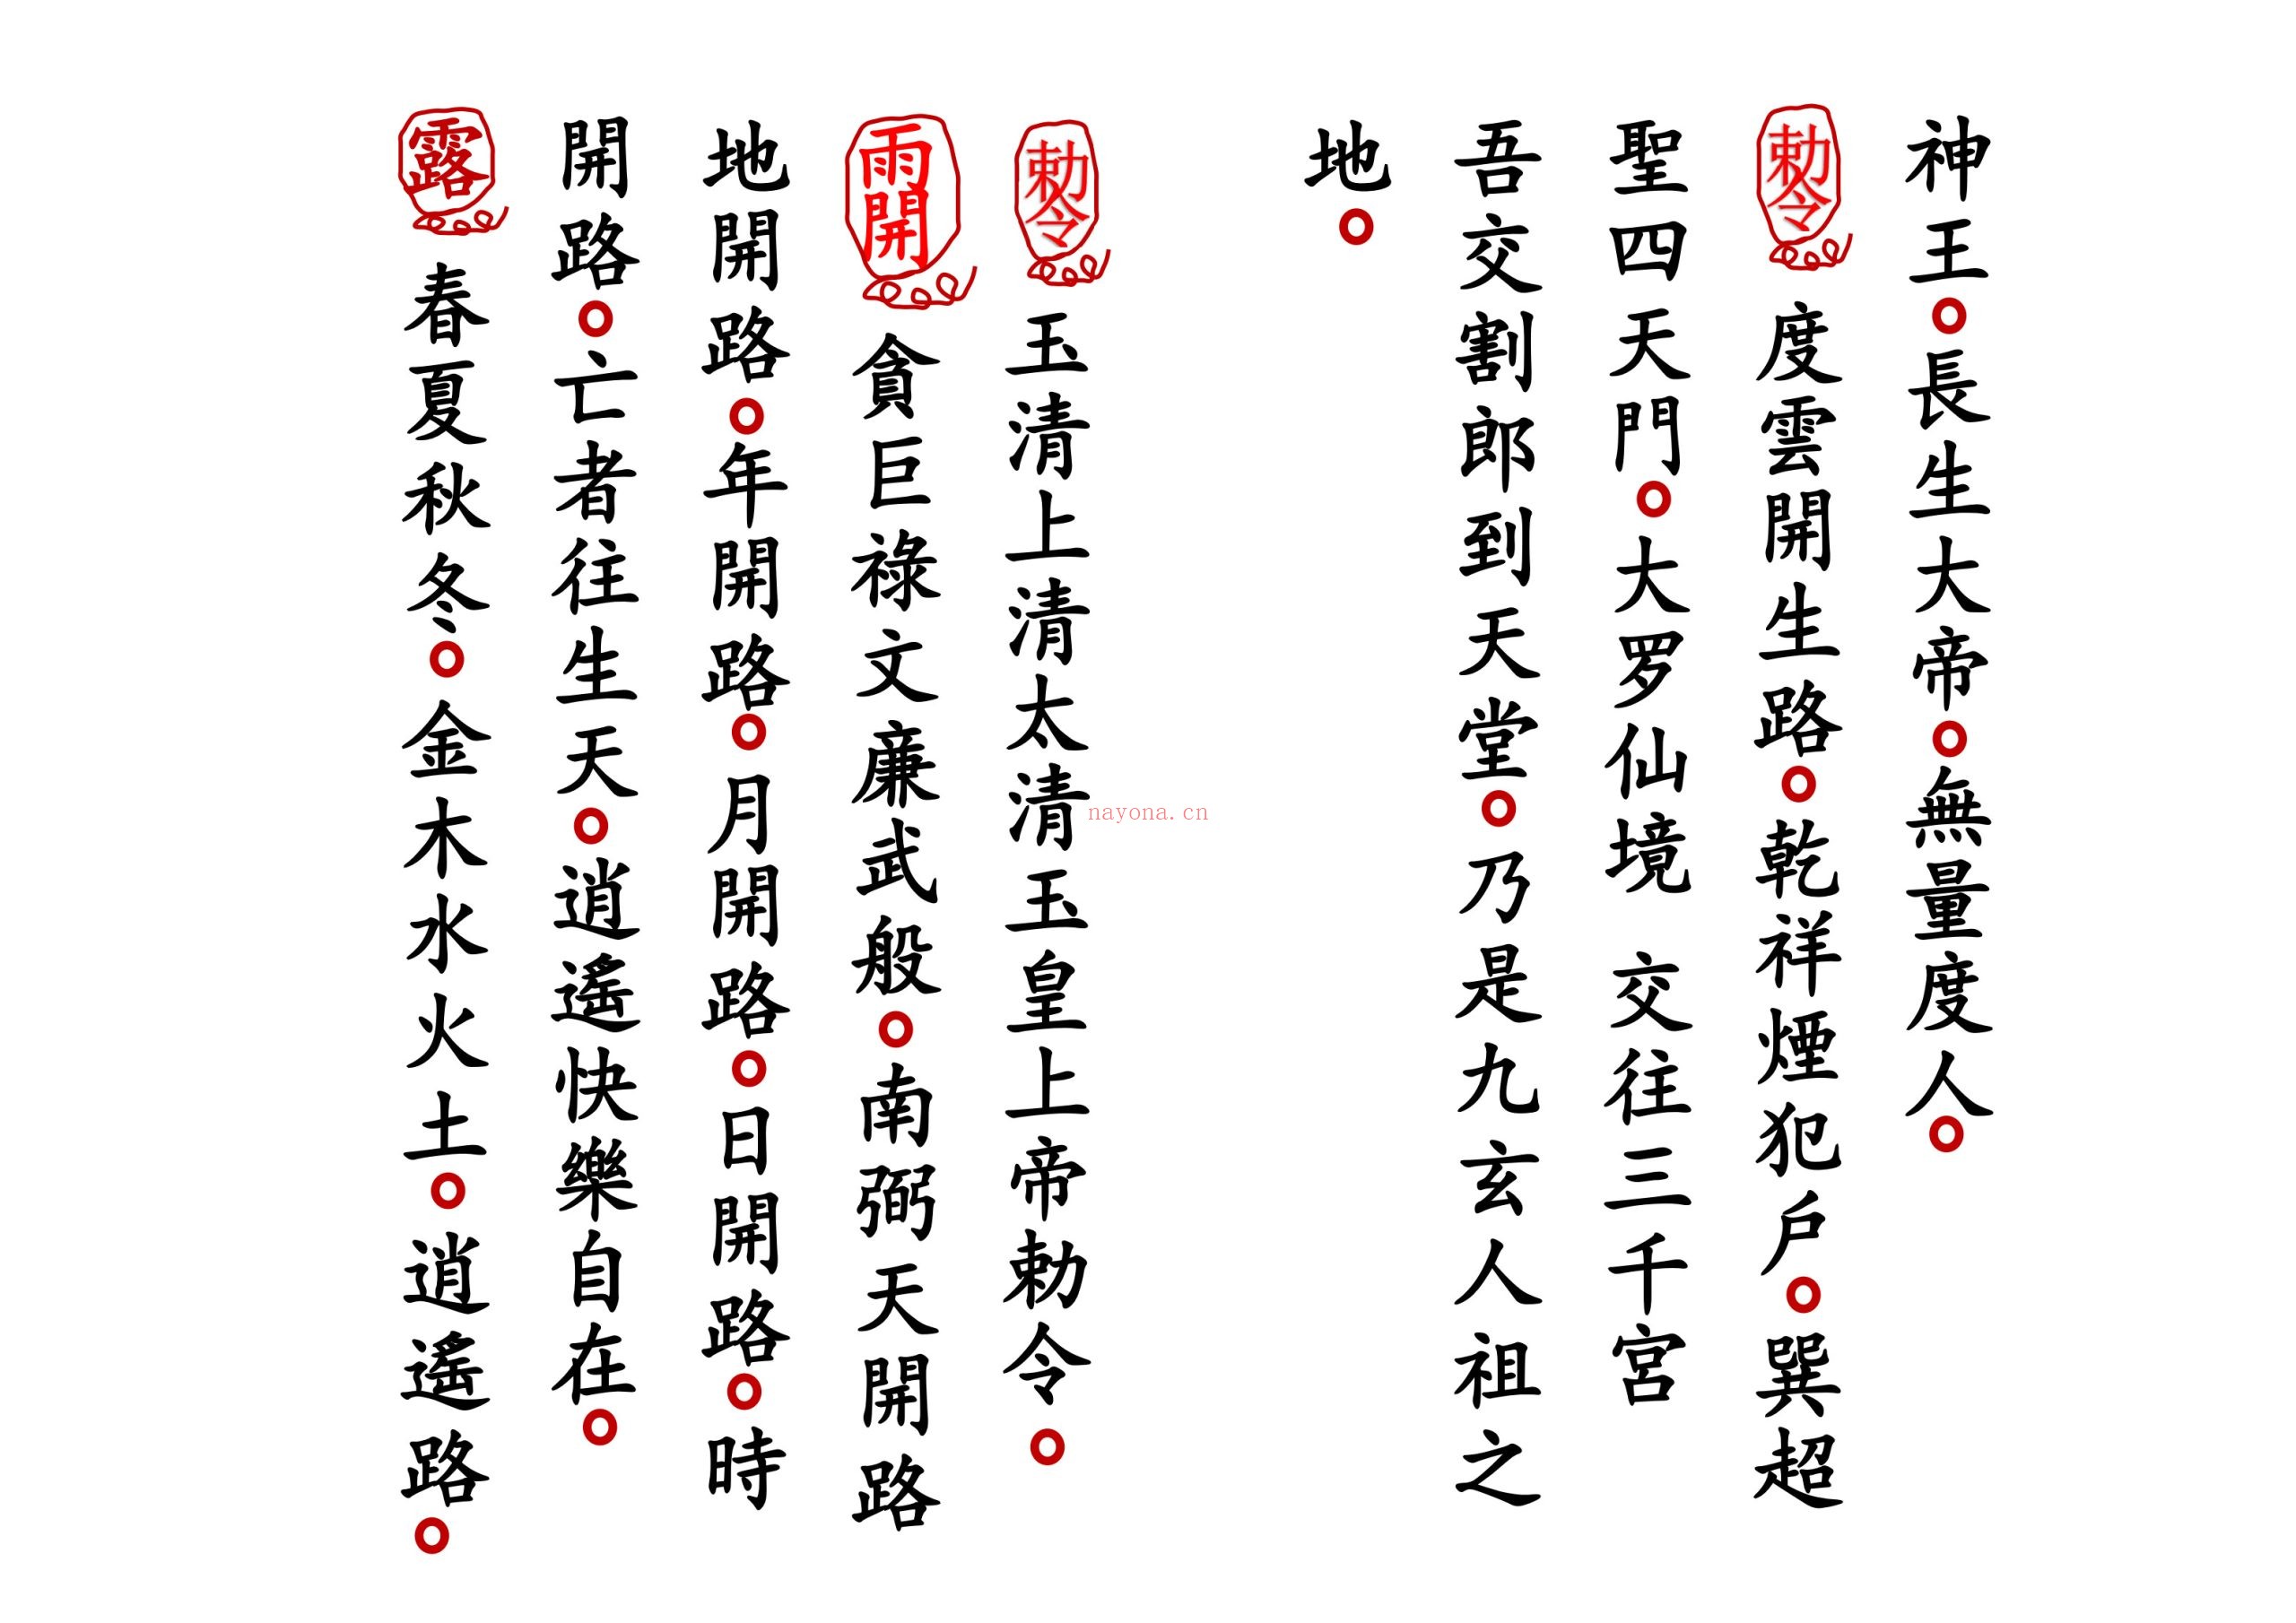 神王。長生大帝。無量度人。
勅令度雲開生路。乾祥煙犯戶。巽超
聖四天門。大罗仙境 交往三千宮
吾交割郎到天堂。乃是九玄人祖之
地。
勅令玉清上清太清玉皇上帝勅令。
雨開貪巨祿文廉武般。南弼天開路
地開路。年開路。月開路。日開路。時
開路。亡者往生天。逍遙快樂自在。
露春夏秋冬。金木水火土。逍遙路。
nayona.cn